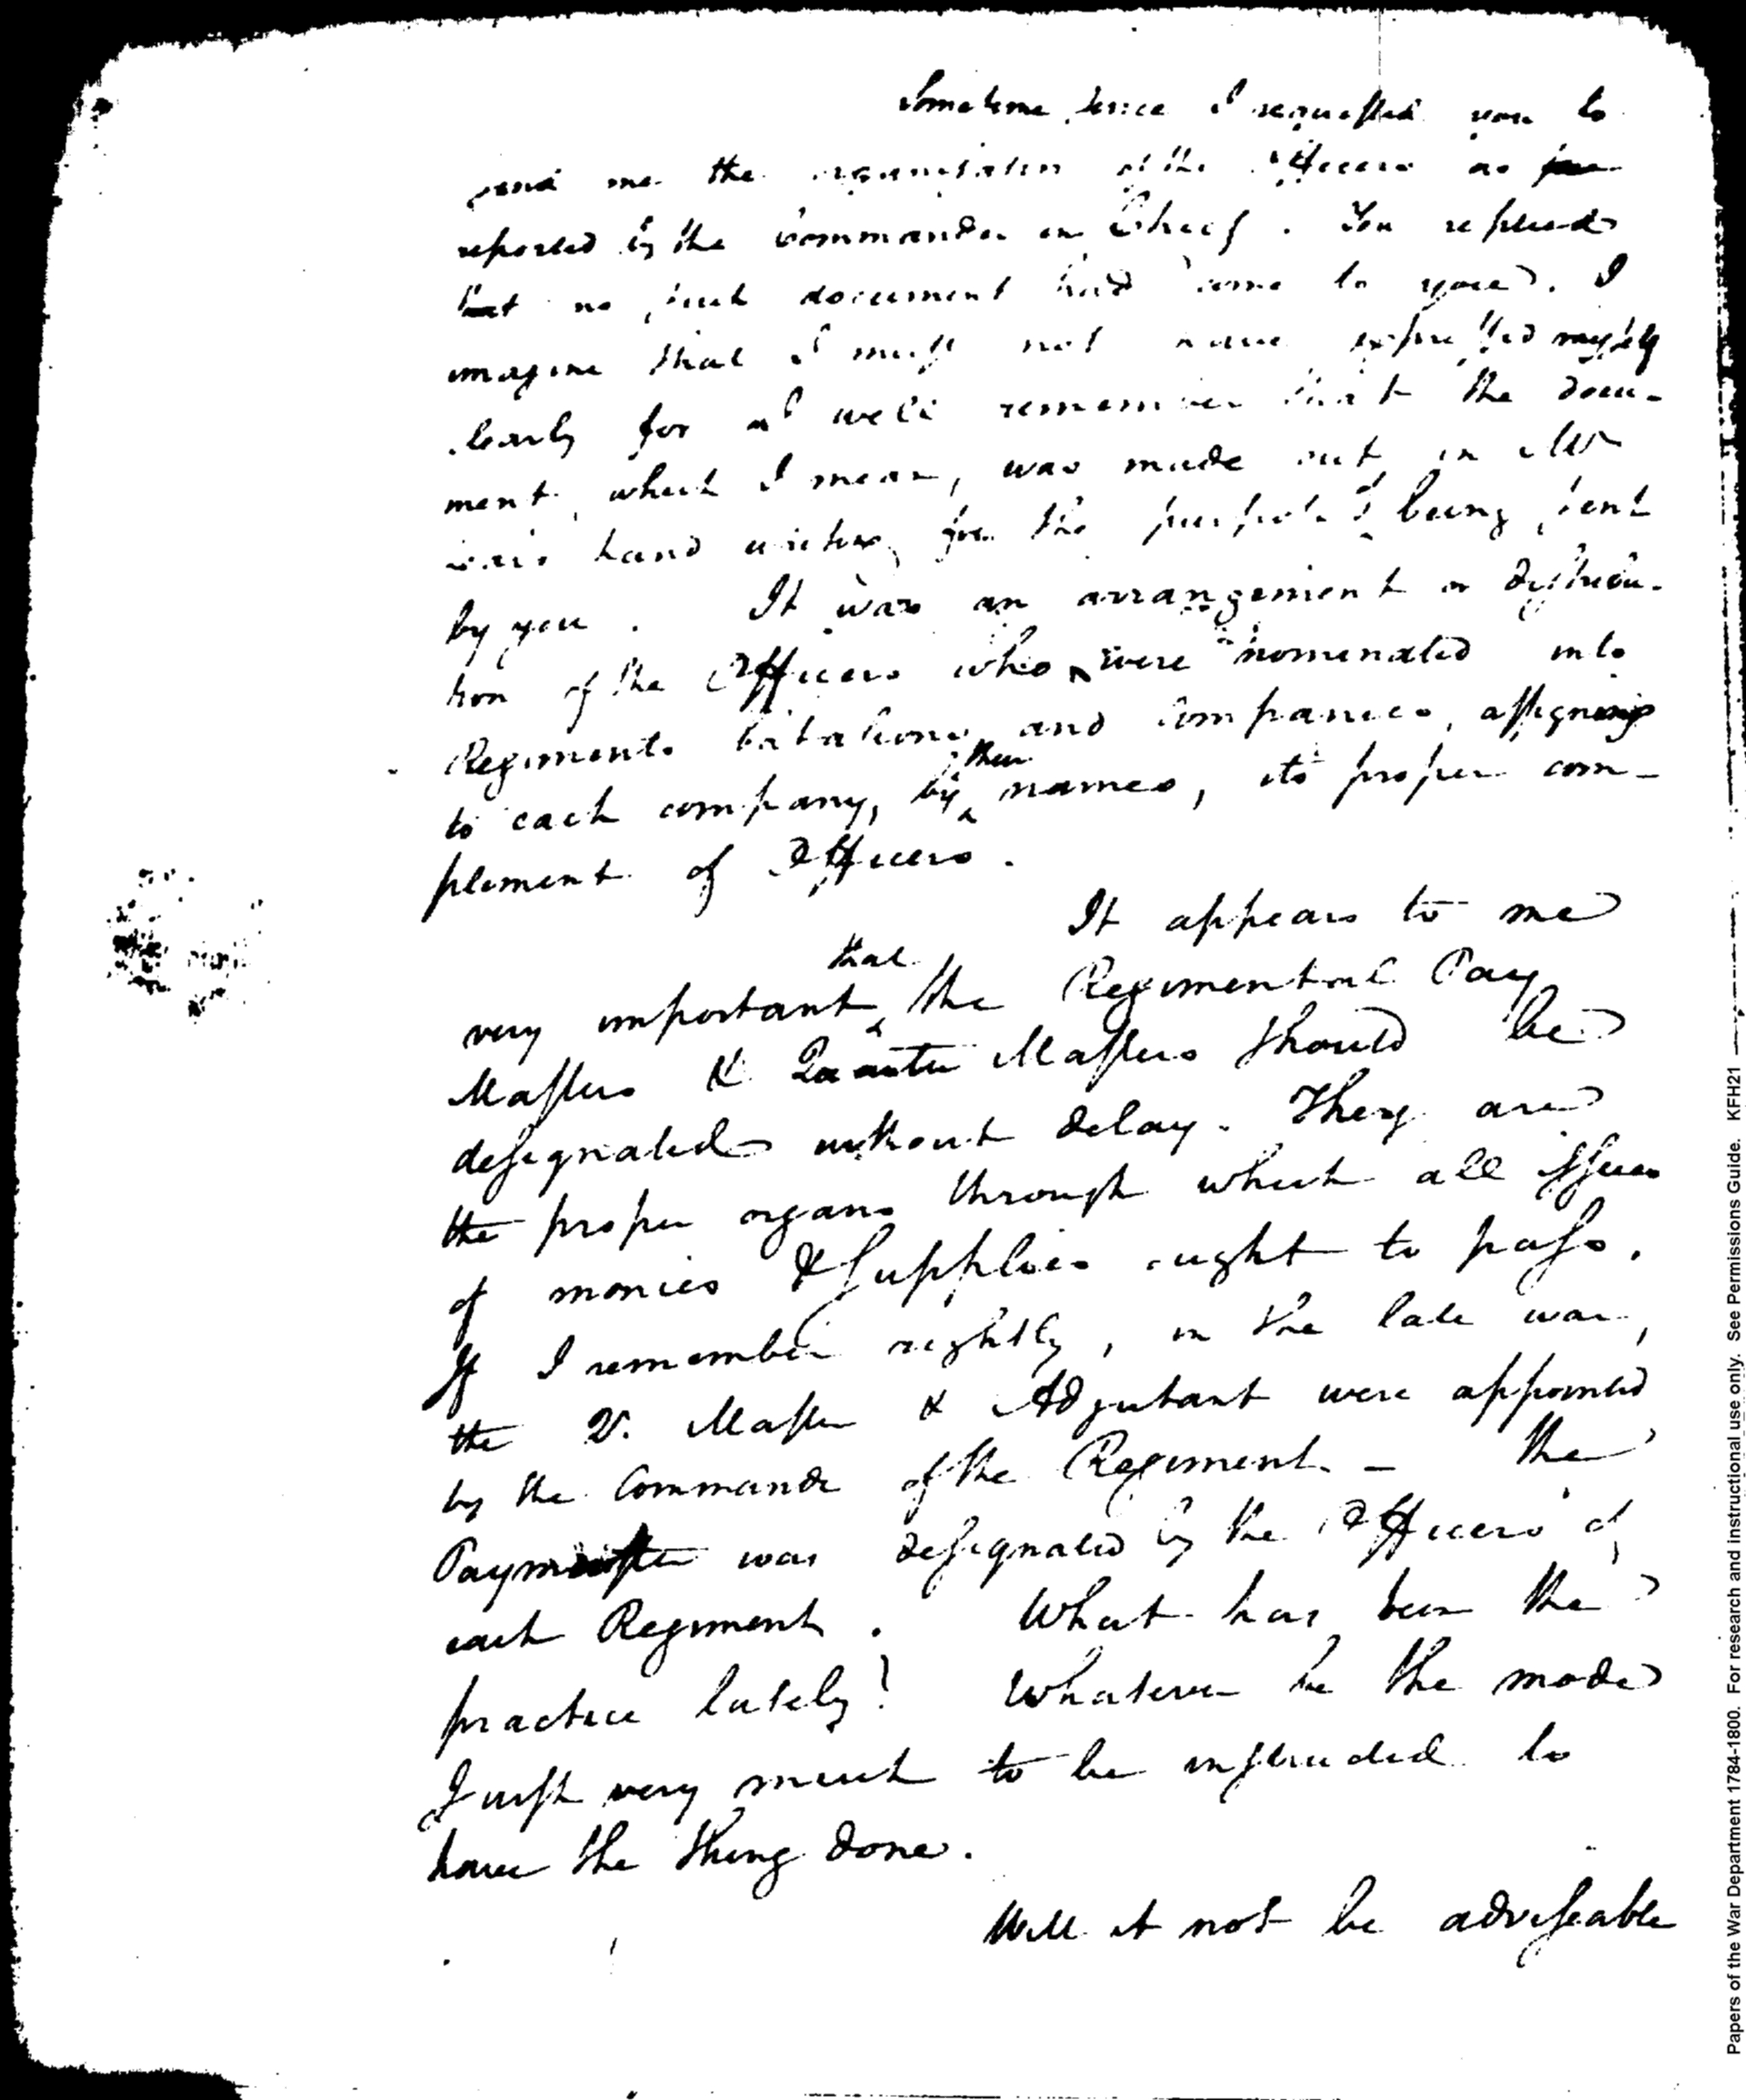 Sometime since I requested you to
send me the organisation of the Officers as
reported by the Commander in Chief. You replied
that no such document had come to you. I
imagine that I must not have expressed myself
clearly for I well remember that the docu-
ment, which I mean, was made out in Mr
hand writing for the purpose of being sent
by you. It was an arrangement or distribu-
tion of the Officers who were nominated into
Regiments batalions and companies, assigning
to each company, by their names, its proper com-
plement of Officers.
It appears to me
very important that the Regimental Pay
Masters & Quarter Masters should be
designated without delay. They are
the proper organs through which all issues
of monies & Supplies ought to pass.
If I remember rightly, in the late war,
the Q. Master & Adjutant were appointed
by the Commandr of the Regiment - the
Paymaster was designated by the Officers of
each Regiment. What has been the
practice lately? Whatever be the mode
I wish very much to be instructed to
have the thing done.
Will it not be adviseable
Papers of the War Department 1784-1800. For research and instructional use only. See Permissions Guide. KFH21